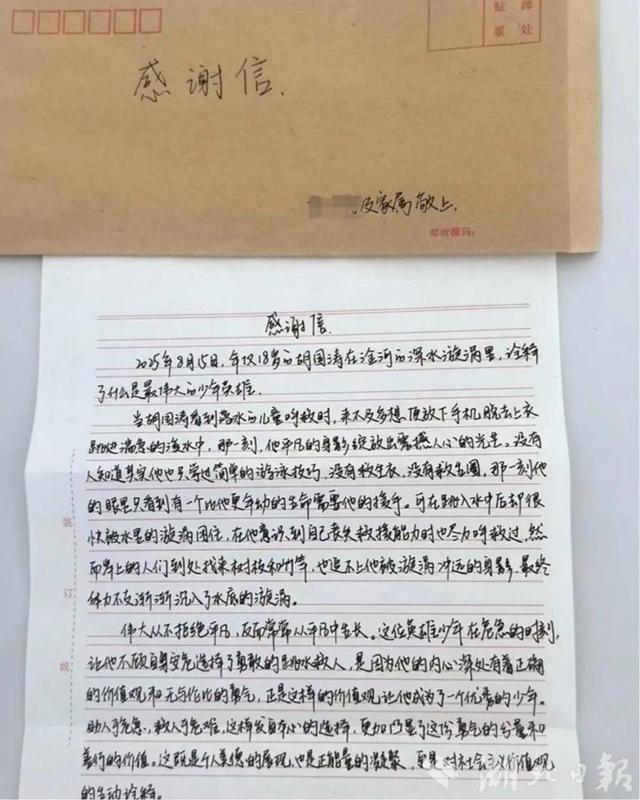 贴 邮
票 处
感谢信.
及家属敬上.
邮政编码:
感谢信.
2025年8月15日,年仅18岁的胡国涛在淦河的深水漩涡里,诠释
了什么是最伟大的少年英雄.
当胡国涛看到落水的儿童呼救时,来不及多想顶放下手机脱去上衣
跳进湍急的深水中,那一刻,他平凡的身影绽放出震撼人心的光茫。没有
人知道其实他也只学过简单的游泳技巧,没有救生衣,没有救生圈,那一刻他
的眼里只看到有一个比他更年幼的生命需要他的援手。可在跳入水中后却很
快被水里的漩涡困住,在他意识到自己丧失救援能力时也尽力呼救过,然
而岸上的人们到处找来树枝和竹竿,也追不上他被漩涡冲远的身影,最终
体力不支渐渐沉入了水底的漩涡。
伟大从不拒绝平凡,反而常常从平凡中生长。这位英雄少年在危急的时刻,
让他不顾自身安危选择了勇敢的跳水救人,是因为他的内心深处有着正确
的价值观和无与伦比的勇气,正是这样的价值观让他成为了一个优秀的少年。
助人于危急,救人于危难,这样发自本心的选择,更加凸显了这份勇气的分量和
善行的价值。这既是个人美德的展现,也是正能量的凝聚,更是对社会主义价值观
的生动诠释。
装
订
线
湖北日报